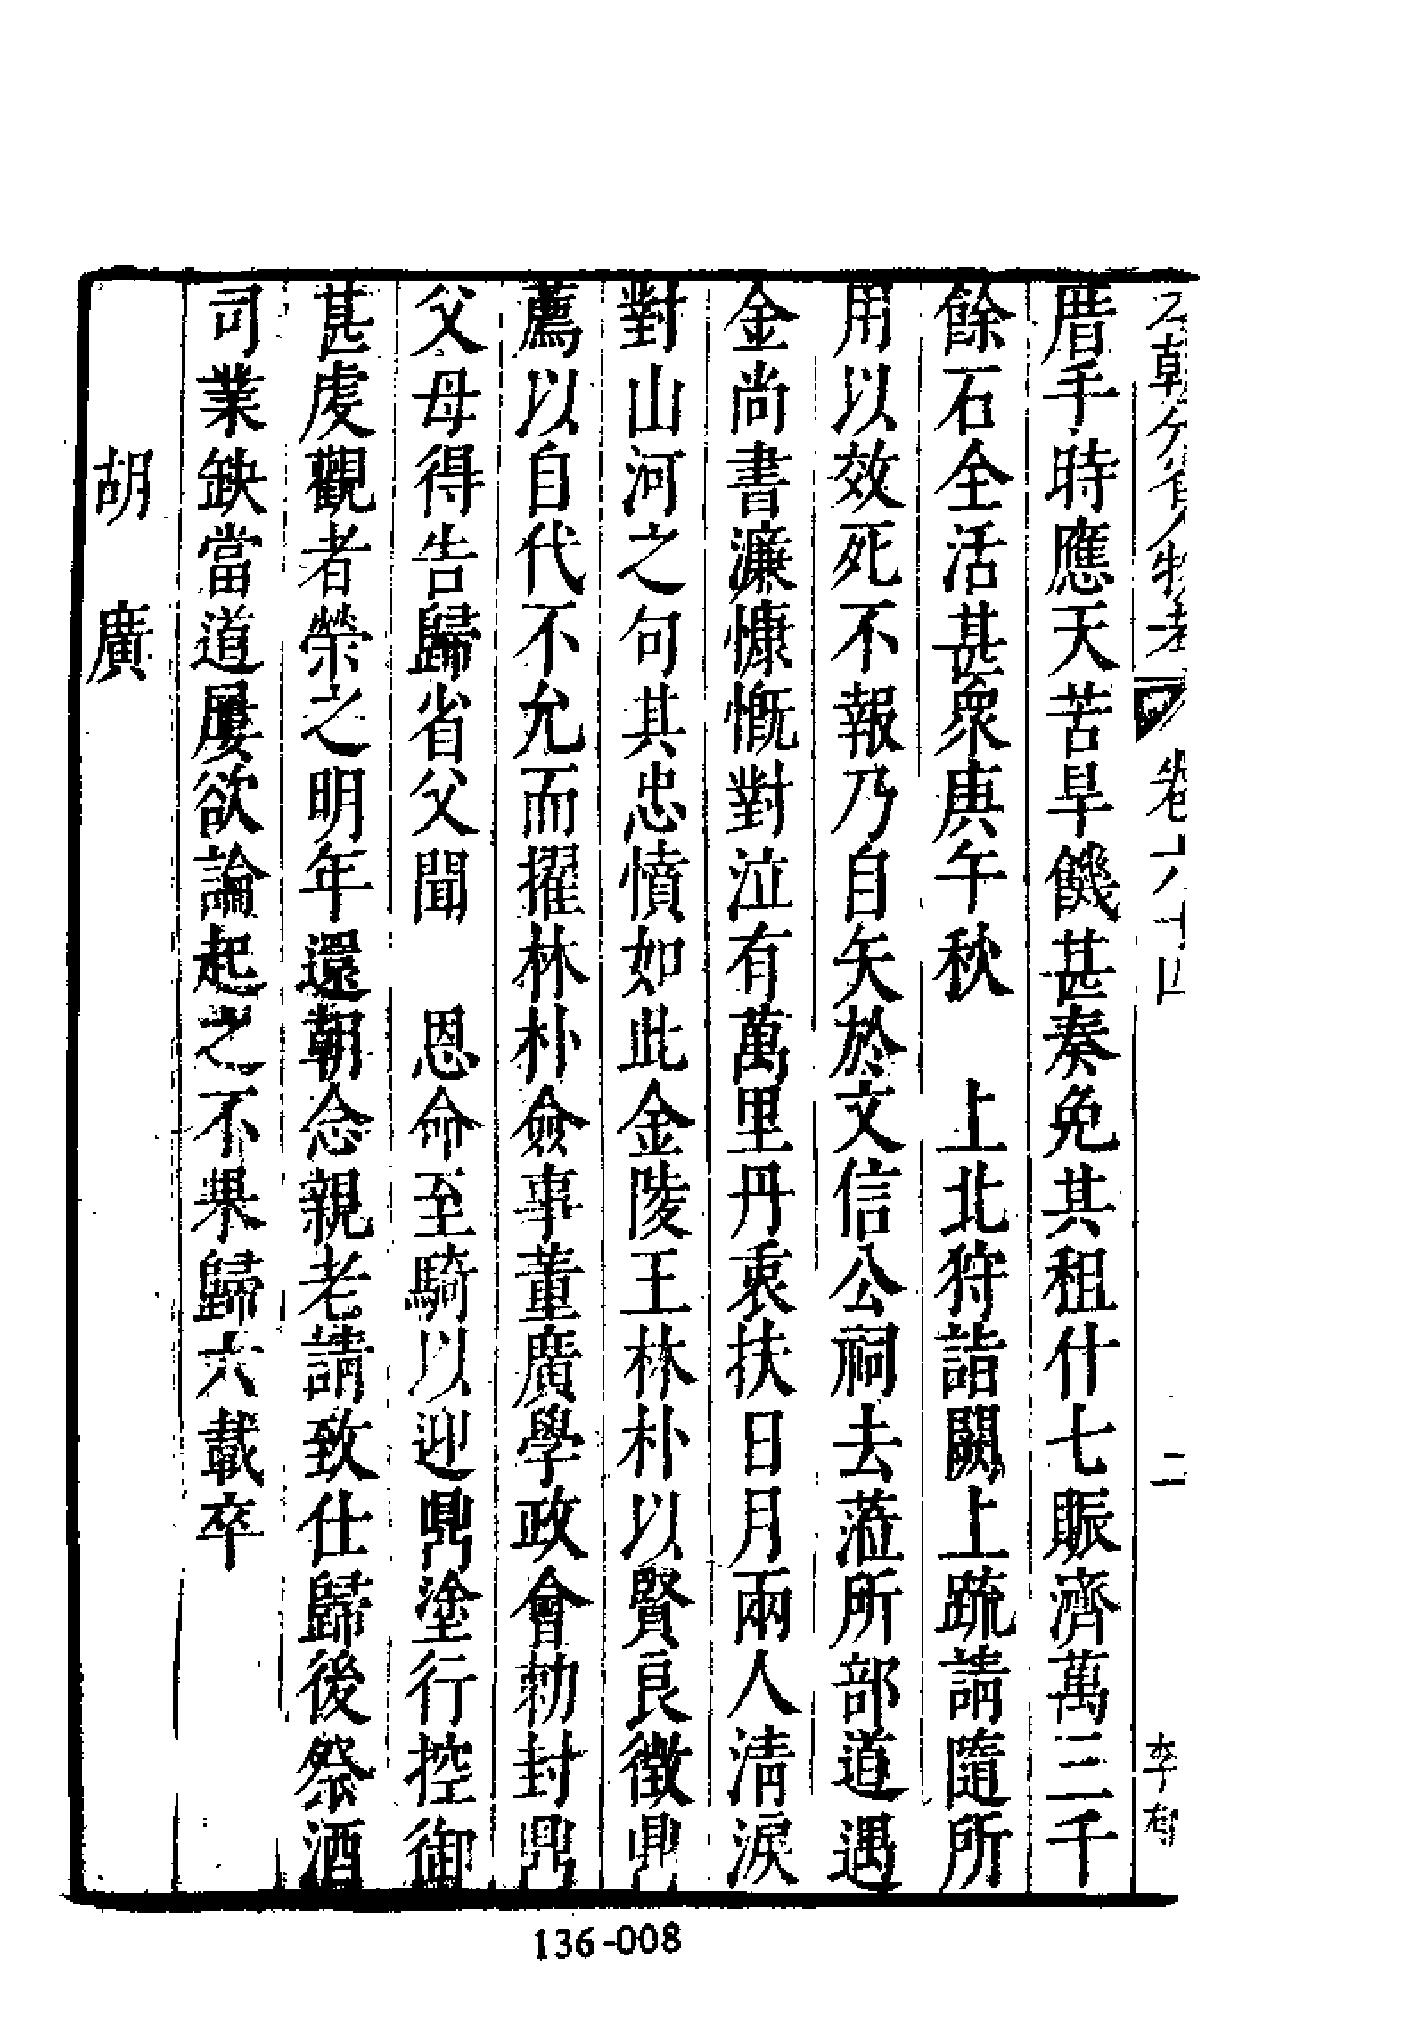 本朝分省人物考 卷六十四 二
厝手時應天苦旱饑甚奏免其租什七賑濟萬三千
餘石全活甚眾庚午秋　上北狩詣闕上疏請隨所
用以效死不報乃自矢於文信公祠去蒞所部道遇
金尚書濂慷慨對泣有萬里丹衷扶日月兩人清淚
對山河之句其忠憤如此金陵王林朴以賢良徵鼎
薦以自代不允而擢林朴僉事董廣學政會勑封鼎
父母得告歸省父聞　恩命至騎以迎鼎塗行控御
甚虔觀者榮之明年還朝念親老請致仕歸後祭酒
司業缺當道屢欲論起之不果歸六載卒
胡　廣
136-008